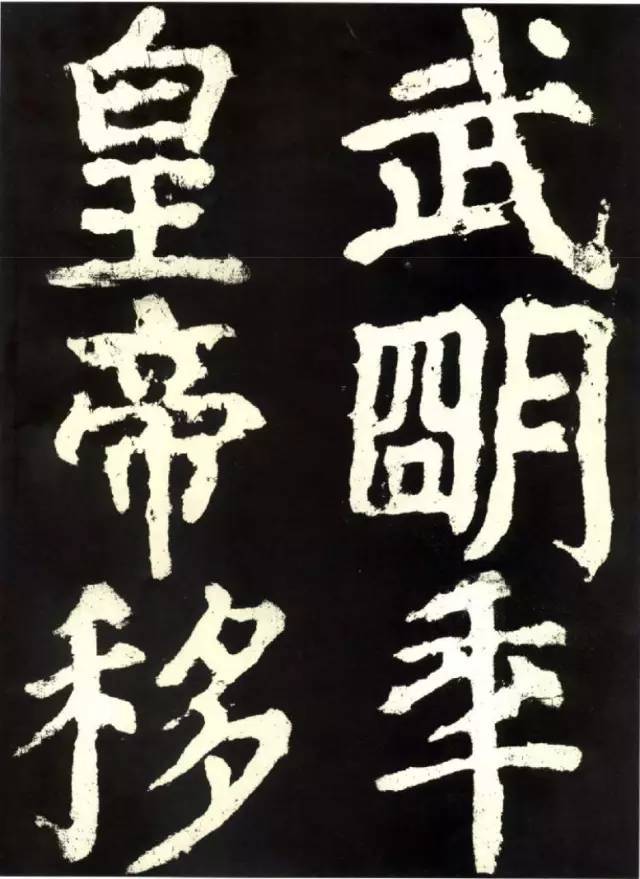 武朙年
皇帝移